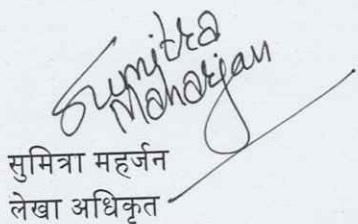 Sumitra
Maharjan
सुमित्रा महर्जन
लेखा अधिकृत